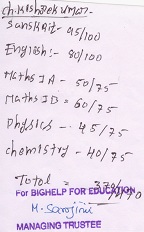 ch. Kishore Kumar-
Sanskrit- 95/100
English:- 80/100
Maths IA - 50/75
Maths IB = 60/75
Physics - 45/75
chemistry - 40/75
Total =
For BIGHELP FOR EDUCATION
M. Sarojini
MANAGING TRUSTEE